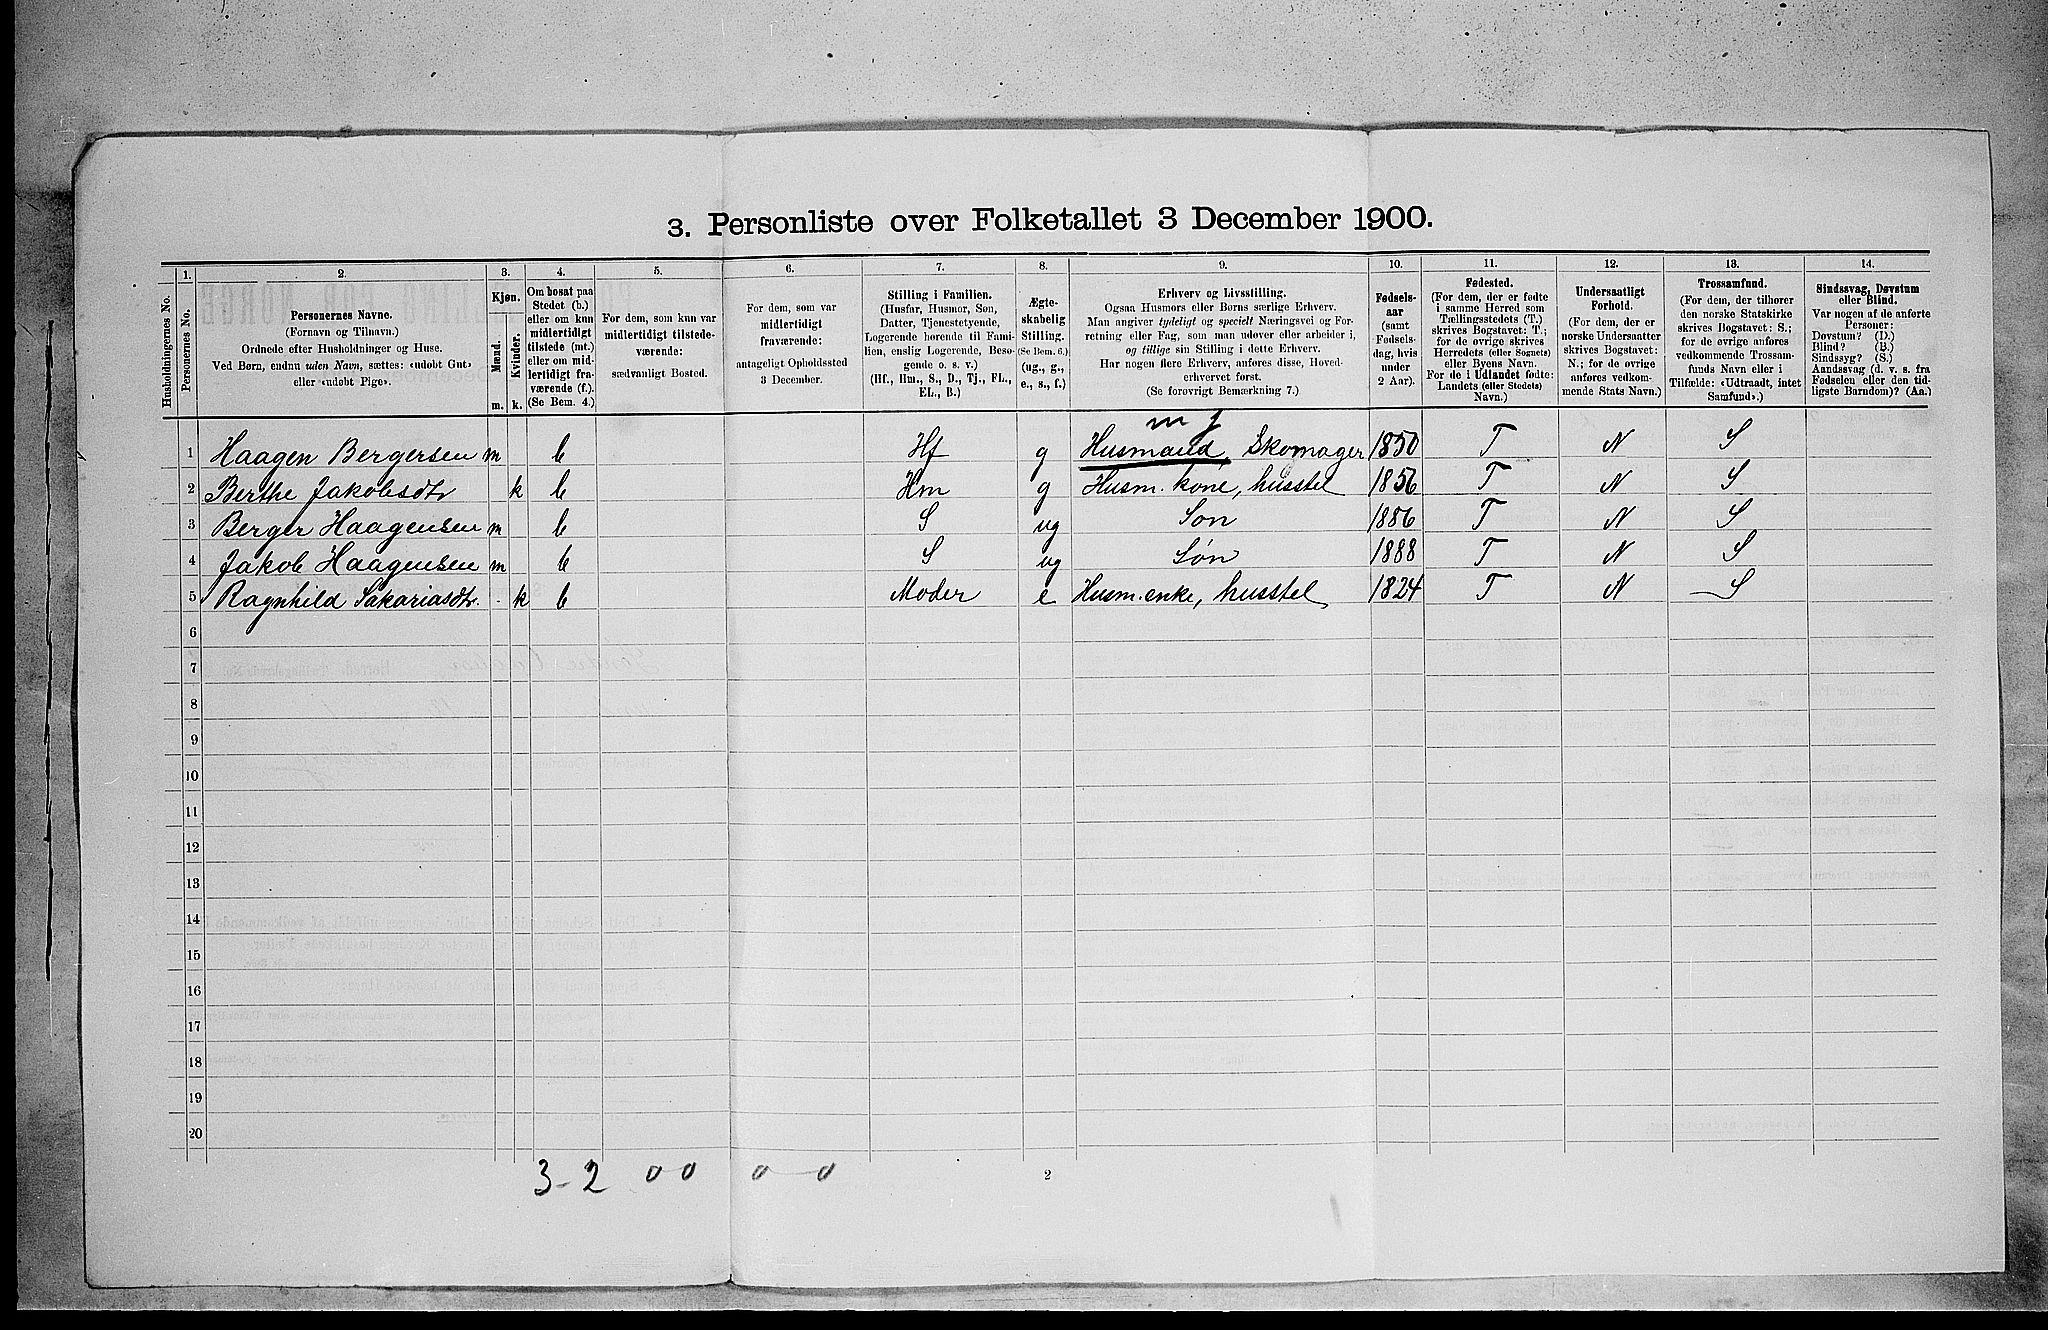 3. Personliste over Folketallet 3 December 1900.
1. 2. 3. 4. 5. 6. 7. 8. 9. 10. 11. 12. 13. 14.
Husholdningernes No.
Personernes No.
Personernes Navne.
(Fornavn og Tilnavn.)
Ordnede efter Husholdninger og Huse.
Ved Børn, endnu uden Navn, sættes: «udøbt Gut»
eller «udøbt Pige».
Kjøn.
Mænd.
Kvinder.
m. k.
Om bosat paa
Stedet (b.)
eller om kun
midlertidigt
tilstede (mt.)
eller om mid-
lertidigt fra-
værende (f.).
(Se Bem. 4.)
For dem, som kun var
midlertidigt tilstede-
værende:
sædvanligt Bosted.
For dem, som var
midlertidigt
fraværende:
antageligt Opholdssted
3 December.
Stilling i Familien.
(Husfar, Husmor, Søn,
Datter, Tjenestetyende,
Logerende hørende til Fami-
lien, enslig Logerende, Besø-
gende o. s. v.)
(Hf., Hm., S., D., Tj., FL.,
EL., B.)
Ægte-
skabelig
Stilling.
(Se Bem. 6.)
(ug., g.,
e., s., f.)
Erhverv og Livsstilling.
Ogsaa Husmors eller Børns særlige Erhverv.
Man angiver tydeligt og specielt Næringsvei og For-
retning eller Fag, som man udøver eller arbeider i,
og tillige sin Stilling i dette Erhverv.
Har nogen flere Erhverv, anføres disse, Hoved-
erhvervet først.
(Se forøvrigt Bemærkning 7.)
Fødsels-
aar
(samt
Fødsels-
dag, hvis
under
2 Aar).
Fødested.
(For dem, der er fødte
i samme Herred som
Tællingsstedets (T.)
skrives Bogstavet: T.;
for de øvrige skrives
Herredets (eller Sognets)
eller Byens Navn.
For de i Udlandet fødte:
Landets (eller Stedets)
Navn.)
Undersaatligt
Forhold.
(For dem, der er
norske Undersaatter
skrives Bogstavet:
N.; for de øvrige
anføres vedkom-
mende Stats Navn.)
Trossamfund.
(For dem, der tilhører
den norske Statskirke
skrives Bogstavet: S.;
for de øvrige anføres
vedkommende Trossam-
funds Navn eller i
Tilfælde: «Udtraadt, intet
Samfund».)
Sindssvag, Døvstum
eller Blind.
Var nogen af de anførte
Personer:
Døvstum? (D.)
Blind? (B.)
Sindssyg? (S.)
Aandssvag (d. v. s. fra
Fødselen eller den tid-
ligste Barndom)? (Aa.)
m j
1 Haagen Bergersen m b Hf g Husmand, Skomager 1850 T N S
2 Berthe Jakobsdtr k b Hm g Husm. kone, husstel 1856 T N S
3 Berger Haagensen m b S ug Søn 1886 T N S
4 Jakob Haagensen m b S ug Søn 1888 T N S
5 Ragnhild Sakariasdtr. k b Moder e Husm. enke, husstel 1824 T N S
6
7
8
9
10
11
12
13
14
15
16
17
18
19
20
3-2 0 0 0 - 0
2